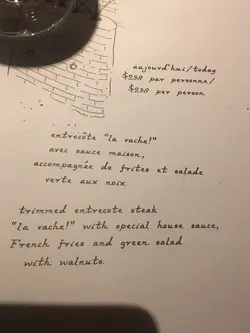 aujourd'hui/today
par personne/
per person.
entrecôte "la vache!"
avec sauce maison,
accompagnée de frites et salade
verte aux noix.
trimmed entrecote steak
"la vache!" with special house sauce,
French fries and green salad
with walnuts.